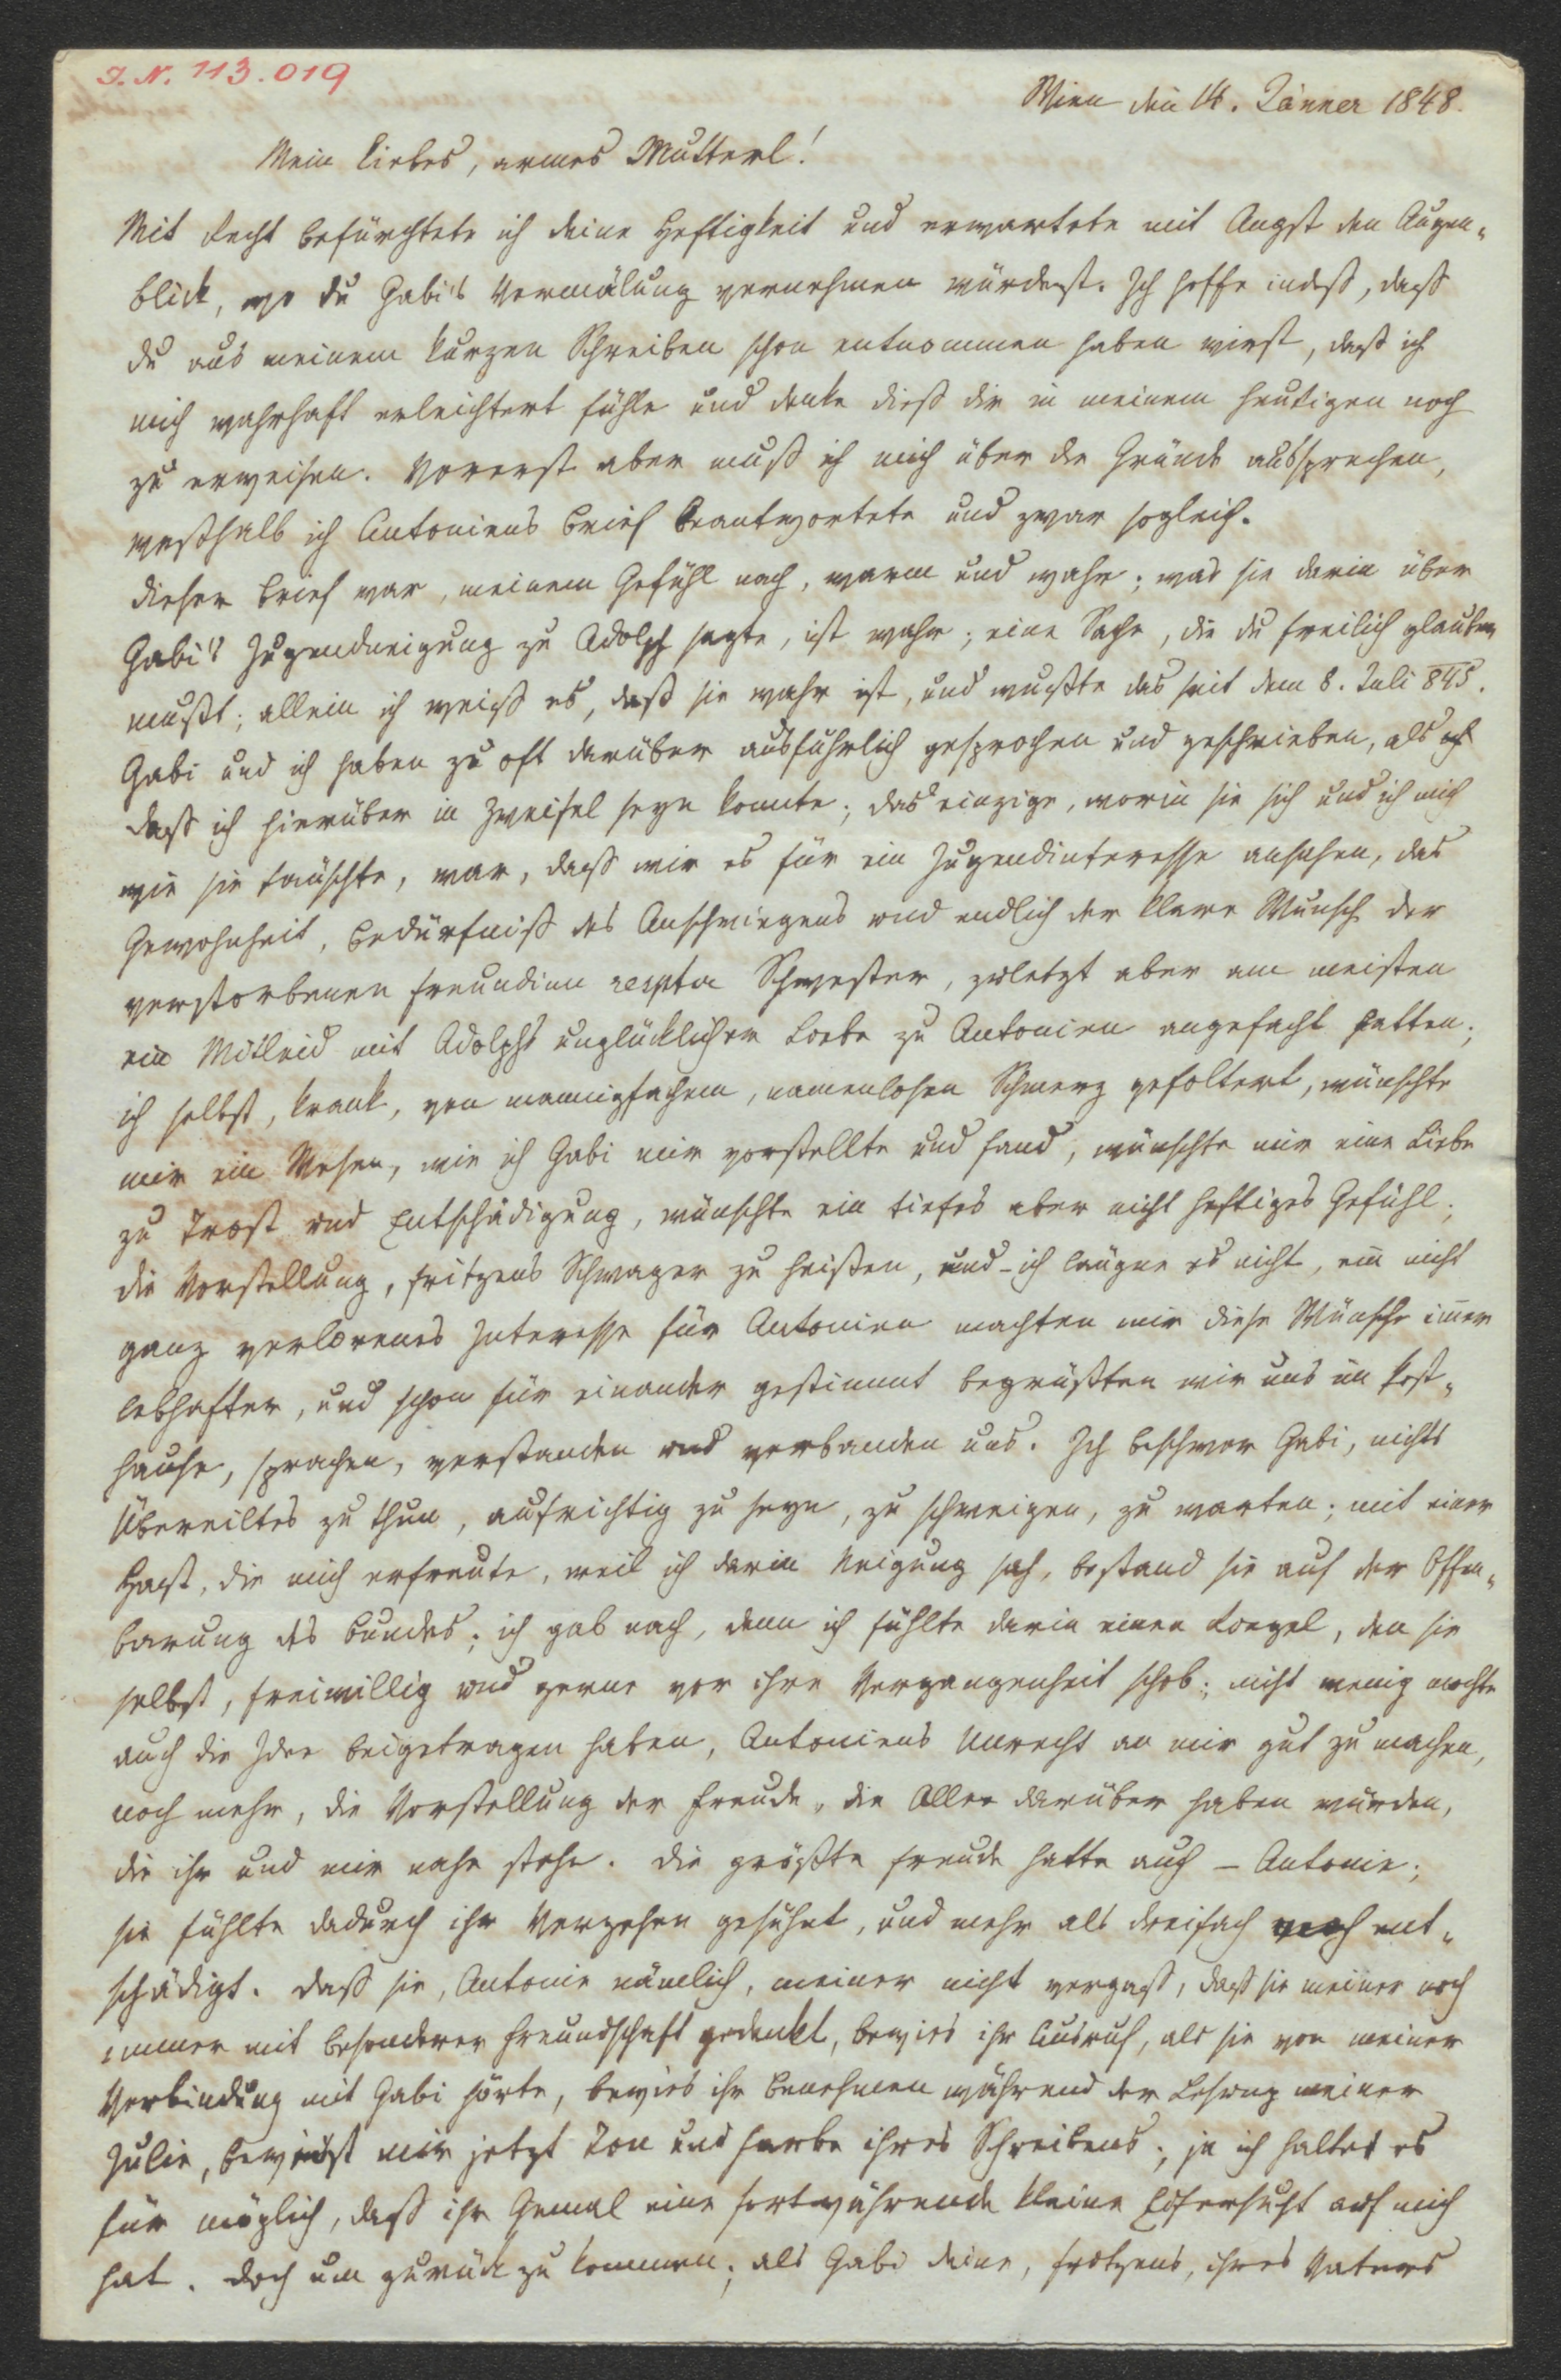 I. N. 113.019
Wien den 14. Jänner 1848.
Mein liebes, armes Mutterl!
Mit Recht befürchtete ich deine Heftigkeit und erwartete mit Angst den Augen-
blick, wo du Gabi's Vermälung vernehmen würdest. Ich hoffe indeß, daß
du aus meinem kurzen Schreiben schon entnommen haben wirst, daß ich
mich wahrhaft erleichtert fühle und denke dieß dir in meinem heutigen noch
zu erweisen. Vorerst aber muß ich mich über die Gründe aussprechen,
weßhalb ich Antoniens Brief beantwortete und zwar sogleich.
Dieser Brief war, meinem Gefühl nach, warm und wahr; was sie darin über
Gabi's Jugendneigung zu Adolph sagte, ist wahr; eine Sache, die du freilich glauben
mußt; allein ich weiß es, daß sie wahr ist, und wußte das seit dem 8. Juli 845.
Gabi und ich haben zu oft darüber ausführlich gesprochen und geschrieben, als
daß ich hierüber in Zweifel seyn konnte; das einzige, worin sie sich und ich mich
wie sie täuschte, war, daß wir es für ein Jugendinteresse ansahen, das
Gewohnheit, Bedürfniß des Anschmiegens und endlich der klare Wunsch der
verstorbenen Freundinn respta Schwester, zuletzt aber am meisten
ein Mitleid mit Adolphs unglücklicher Liebe zu Antonien angefacht hatten;
ich selbst, krank, von mannigfachem, namenlosen Schmerz gefoltert, wünschte
mir ein Wesen, wie ich Gabi mir vorstellte und fand, wünschte mir eine Liebe
zu Trost und Entschädigung, wünschte ein tiefes aber nicht heftiges Gefühl;
die Vorstellung, Fritzens Schwager zu heißen, und – ich läugne es nicht, ein nicht
ganz verlorenes Interesse für Antonien machten mir diese Wünsche immer
lebhafter, und schon für einander gestimmt begrüßten wir uns im Post-
hause, sprachen, verstanden und verbanden uns. Ich beschwor Gabi, nichts
Übereiltes zu thun, aufrichtig zu seyn, zu schweigen, zu warten; mit einer
Hast, die mich erfreute, weil ich darin Neigung sah, bestand sie auf der Offen-
barung des Bundes; ich gab nach, denn ich fühlte darin einen Riegel, den sie
selbst, freiwillig und gerne vor ihre Vergangenheit schob; nicht wenig mochte
auch die Idee beigetragen haben, Antoniens Unrecht an mir gut zu machen,
noch mehr, die Vorstellung der Freude, die Alle darüber haben würden,
die ihr und mir nahe stehn. Die größte Freude hatte auch – Antonie;
sie fühlte dadurch ihr Vergehen gesühnt, und mehr als dreifach mich ent-
schädigt. Daß sie, Antonie nämlich, meiner nicht vergaß, daß sie meiner noch
immer mit besonderer Freundschaft gedenkt, bewies ihr Ausruf, als sie von meiner
Verbindung mit Gabi hörte, bewies ihr Benehmen während der Lesung meiner
Julie, beweist mir jetzt Ton und Farbe ihres Schreibens; ja ich halte es
für möglich, daß ihr Gemal eine fortwährende kleine Eifersucht auf mich
hat. Doch um zurück zu kommen; als Gabi deine, Fritzens, ihres Vaters